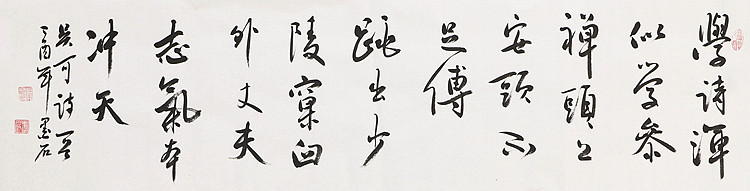 學詩渾
似學參
禪頭上
安頭不
足傳
跳出少
陵窠臼
外丈夫
志氣本
冲天
吴可詩一首
丁酉年墨石